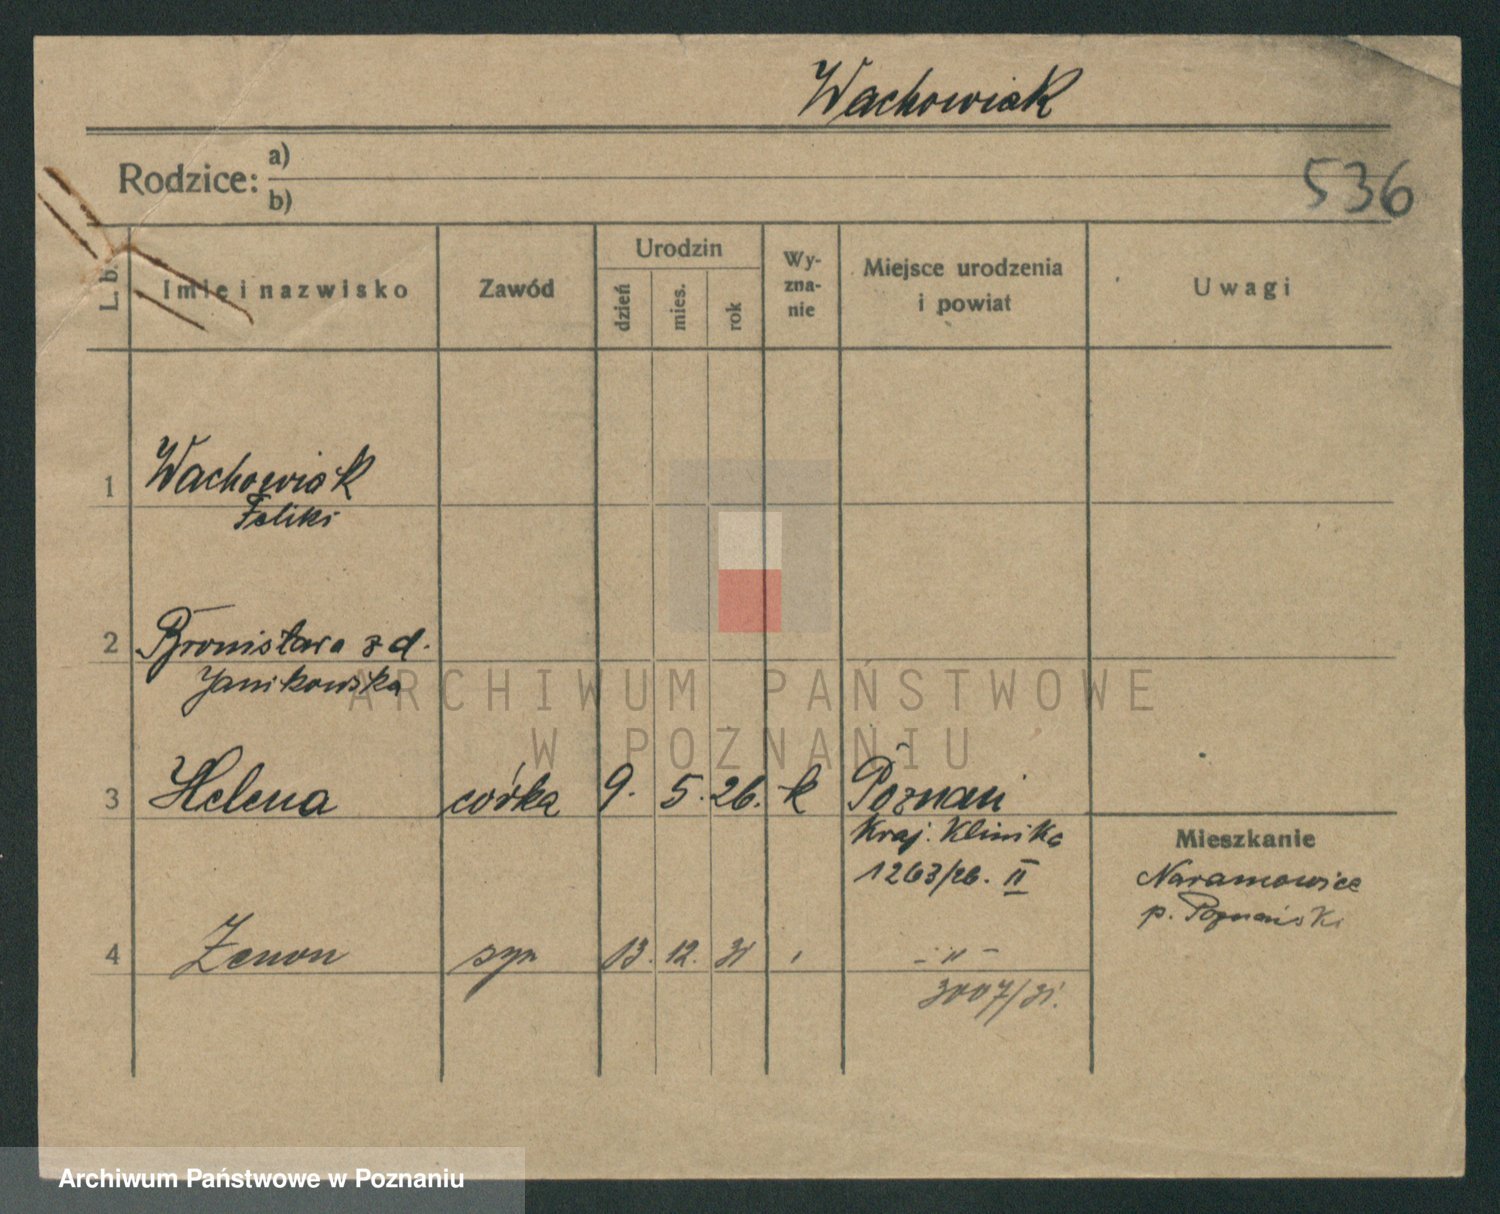 Wachowiak
Rodzice: a)
b)
536
L. b. Imię i nazwisko Zawód Urodzin dzień mies. rok Wy-zna-nie Miejsce urodzenia i powiat Uwagi
1 Wachowiak
Feliks
2 Bronisława z d.
Janikowska
3 Helena córka 9. 5. 26. k Poznań
Kraj. Klinika
1263/26. II
Mieszkanie
Naramowice
p. Poznański
4 Zenon syn 13. 12. 31 " - " -
3007/31.
ARCHIWUM PAŃSTWOWE
W POZNANIU
Archiwum Państwowe w Poznaniu